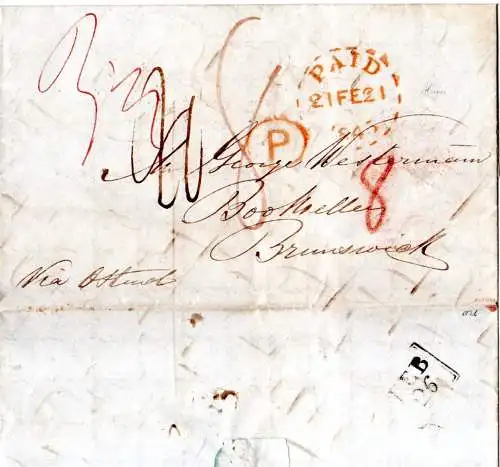 PAID
21 FE 21
P
Mr George Westermann
Bookseller
Brunswick
8
Via Ostend
FEB
26